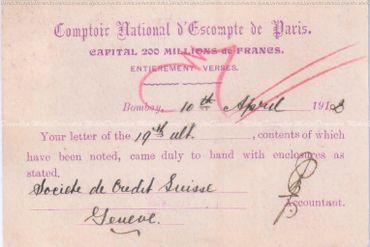 Comptoir National d'Escompte de Paris.
CAPITAL 200 MILLIONS de FRANCS.
ENTIEREMENT VERSES.
Bombay, 10th April 1913
Your letter of the 19th ult. , contents of which
have been noted, came duly to hand with enclosures as
stated.
Societe de Credit Suisse
Accountant.
Geneve.